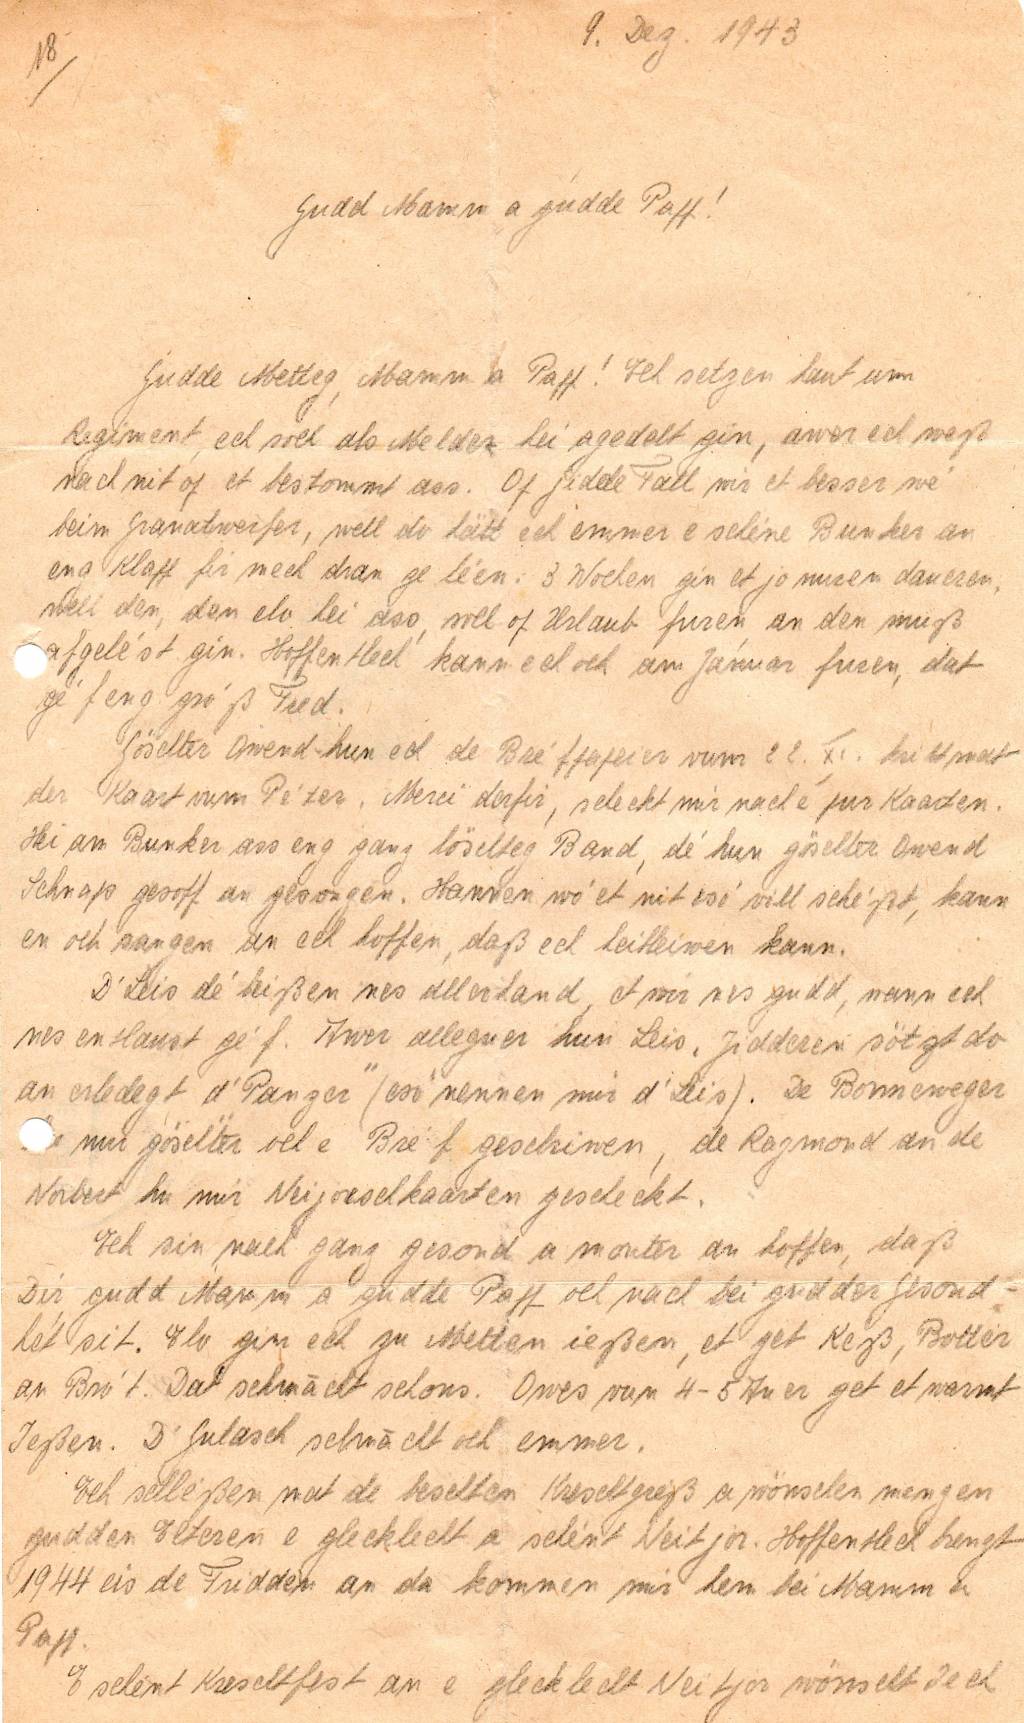 18
9. Dez. 1943
Gudd Mamm a gudde Papp!
Gudde Metteg, Mamm a Papp! Ech setzen haut um
Regiment, ech soll als Melder hei agedelt gin, awer ech weß
nach nit of et bestommt ass. Of jidde Fall wir et besser wé
beim Granatwerfer, well do hätt ech emmer e schéne Bunker an
eng Klapp fir mech dran ze léen. 3 Wochen gin et jo nuren daueren,
well den, den elo hei ass, soll of Urlaub furen, an den muß
afgelést gin. Hoffentlech kann ech och am Januar furen, dat
gé f eng gró ß Fred.
Göschter Owend hun ech de Bréfpapeier vum 22. XI. kritt mat
der Kaart vum Péter. Merci derfir, scheckt mir nach é pur Kaarten.
Hei am Bunker ass eng ganz löschteg Band, dé hun göschter Owend
Schnaps gesoff an gesongen. Hannen wó et nit esó vill schéßt, kann
en och sangen an ech hoffen, daß ech heibleiwen kann.
D'Leis dé beißen nes allerhand, et wir nes gudd, wann ech
nes entlaust gé f. Awer alleguer hun Leis. Jidderen sötzt do
an erledegt d'"Panzer" (esó nennen mir d'Leis). De Bonneweger
mir göschter och e Bré f geschriwen, de Raymond an de
Norbert hu mir Neijoeschkaarten gescheckt.
Ech sin nach ganz gesond a monter an hoffen, daß
Dir, gudd Mamm a gudde Papp och nach bei gudder Gesond-
hét sit. Elo gin ech zu Metten ießen, et get Keß, Botter
an Bró t. Dat schmächt schons. Owes vun 4-5 Auer get et warmt
Ießen. D'Gulasch schmächt och emmer.
Ech schléßen mat de beschten Kreschtgreß a wönschen mengen
gudden Elteren e glecklecht a schént Neit jor. Hoffentlech brengt
1944 eis de Fridden an da kommen mir hem bei Mamm a
Papp.
E schént Kreschtfest an e glecklecht Neitjor wönscht Iech